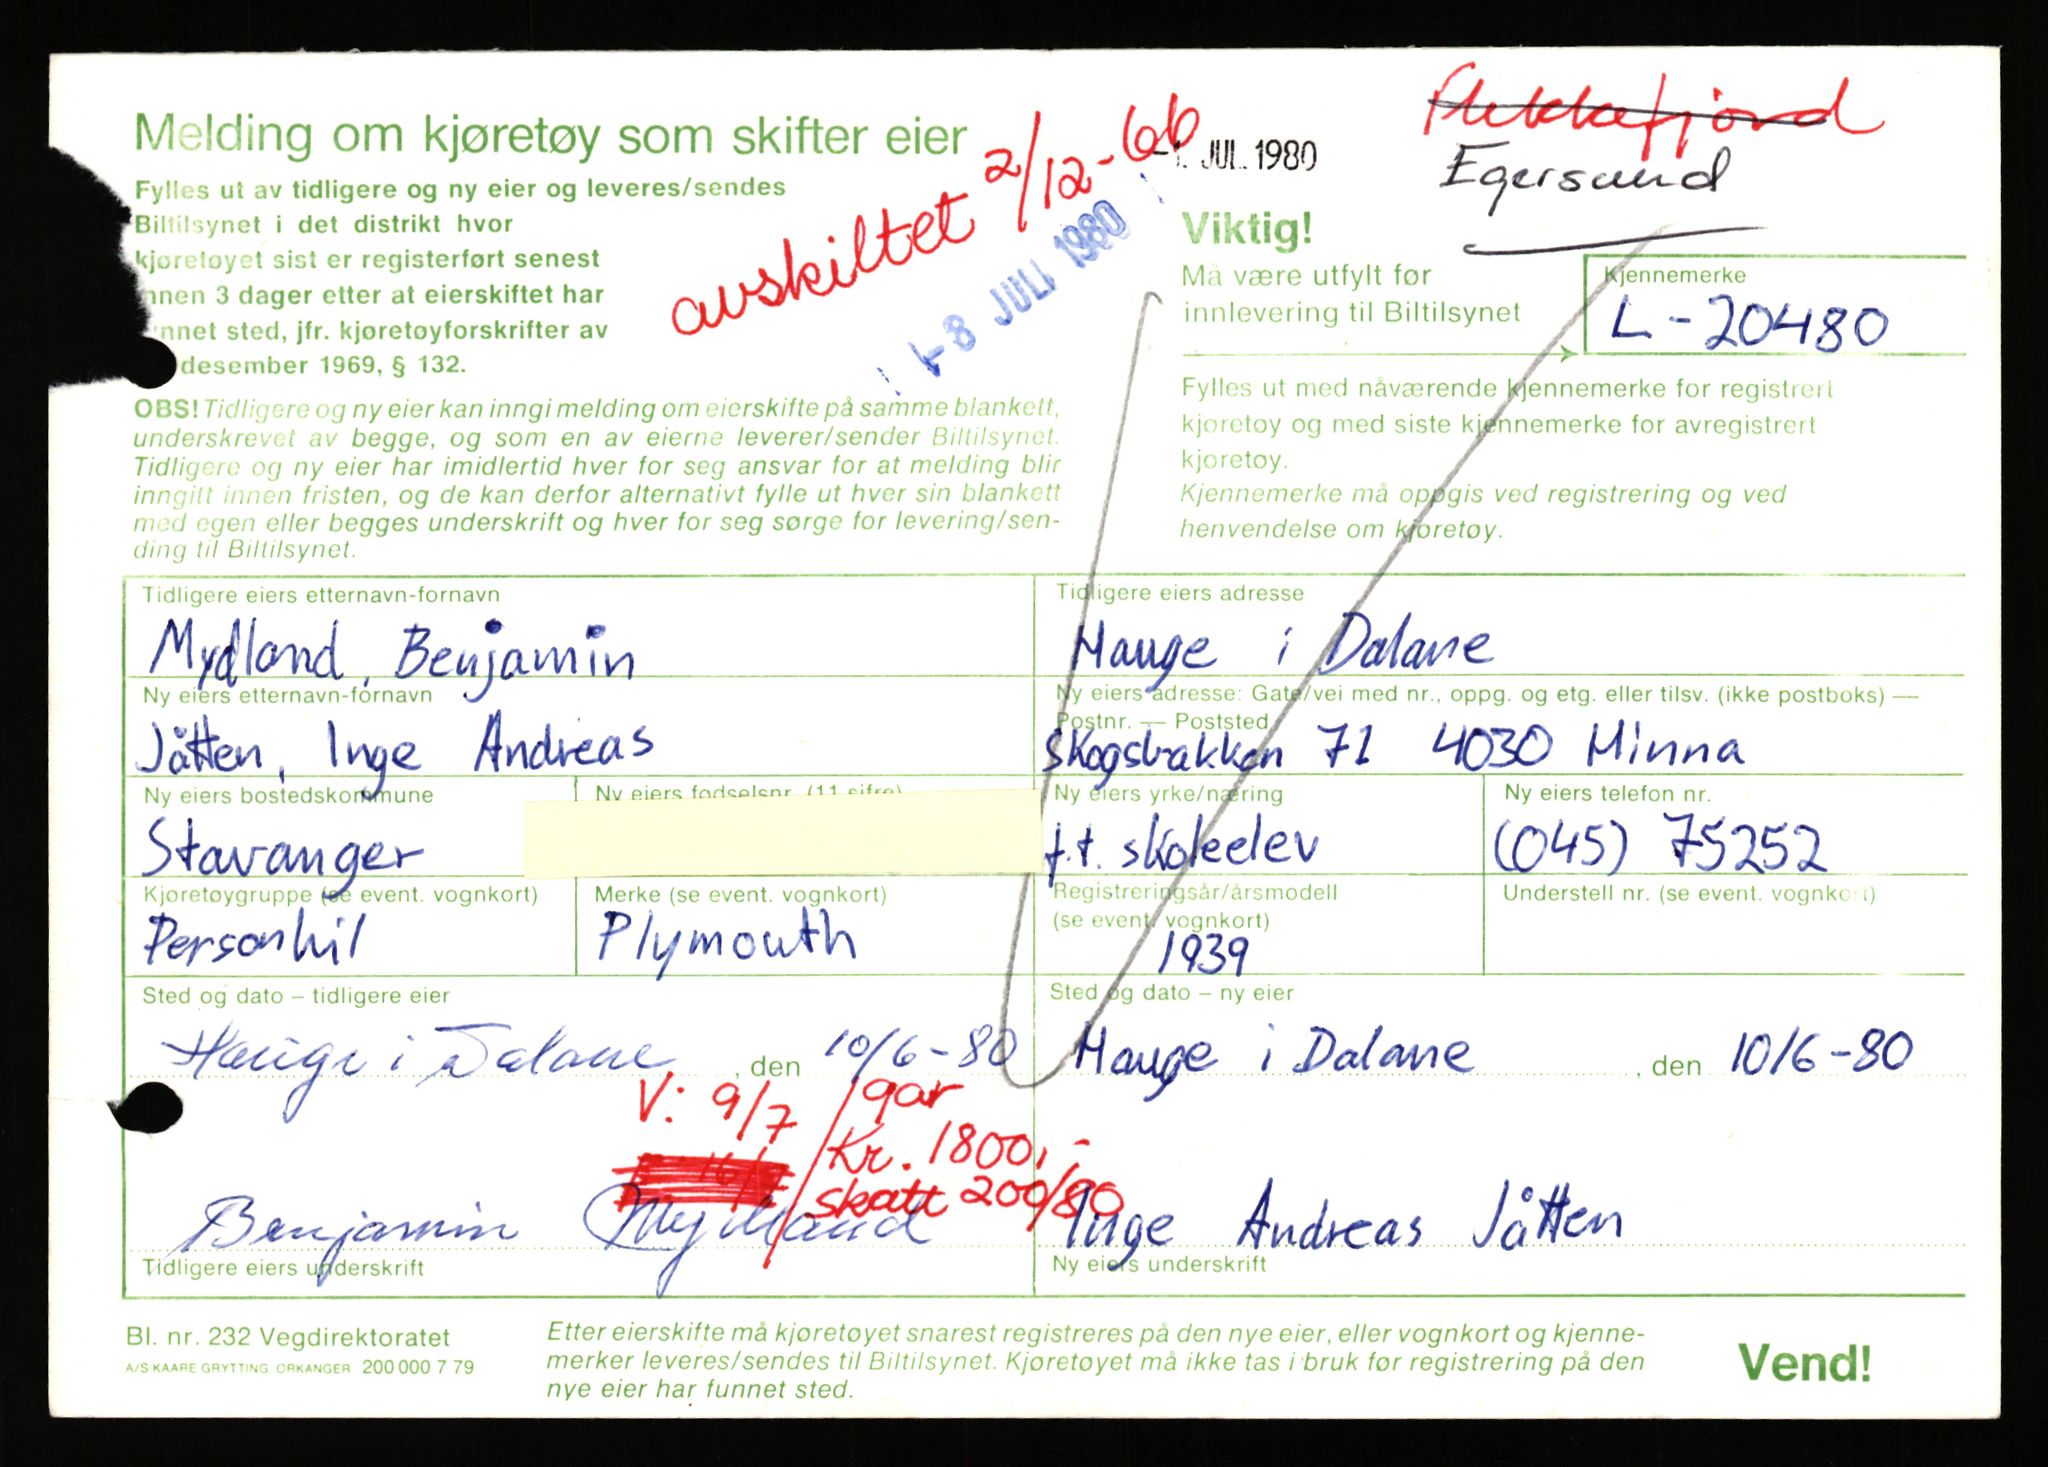 Flekkefjord
Egersund
-1. JUL. 1980
avskiltet 2/12-66
-8 JULI 1980
Melding om kjøretøy som skifter eier
Fylles ut av tidligere og ny eier og leveres/sendes
Biltilsynet i det distrikt hvor
kjøretøyet sist er registerført senest
nnen 3 dager etter at eierskiftet har
nnet sted, jfr. kjøretøyforskrifter av
desember 1969, § 132.
Viktig!
Må være utfylt før
innlevering til Biltilsynet
Kjennemerke
L-20480
OBS! Tidligere og ny eier kan inngi melding om eierskifte på samme blankett,
underskrevet av begge, og som en av eierne leverer/sender Biltilsynet.
Tidligere og ny eier har imidlertid hver for seg ansvar for at melding blir
inngitt innen fristen, og de kan derfor alternativt fylle ut hver sin blankett
med egen eller begges underskrift og hver for seg sørge for levering/sen-
ding til Biltilsynet.
Fylles ut med nåværende kjennemerke for registrert
kjøretøy og med siste kjennemerke for avregistrert
kjøretøy.
Kjennemerke må oppgis ved registrering og ved
henvendelse om kjøretøy.
Tidligere eiers etternavn-fornavn
Mydland, Benjamin
Tidligere eiers adresse
Hauge i Dalane
Ny eiers etternavn-fornavn
Jåtten, Inge Andreas
Ny eiers adresse: Gate/vei med nr., oppg. og etg. eller tilsv. (ikke postboks) —
Postnr. — Poststed
Skogsbakken 71 4030 Hinna
Ny eiers bostedskommune
Stavanger
Ny eiers fødselsnr. (11 sifre)
Ny eiers yrke/næring
f.t. skoleelev
Ny eiers telefon nr.
(045) 75252
Kjøretøygruppe (se event. vognkort)
Personbil
Merke (se event. vognkort)
Plymouth
Registreringsår/årsmodell
(se event. vognkort)
1939
Understell nr. (se event. vognkort)
Sted og dato – tidligere eier
Hauge i Dalane, den 10/6-80
Sted og dato – ny eier
Hauge i Dalane, den 10/6-80
V: 9/7
gar
Kr. 1800,-
skatt 200/80
Benjamin Mydland
Tidligere eiers underskrift
Inge Andreas Jåtten
Ny eiers underskrift
Bl. nr. 232 Vegdirektoratet
A/S KAARE GRYTTING. ORKANGER 200 000 7 79
Etter eierskifte må kjøretøyet snarest registreres på den nye eier, eller vognkort og kjenne-
merker leveres/sendes til Biltilsynet. Kjøretøyet må ikke tas i bruk før registrering på den
nye eier har funnet sted.
Vend!